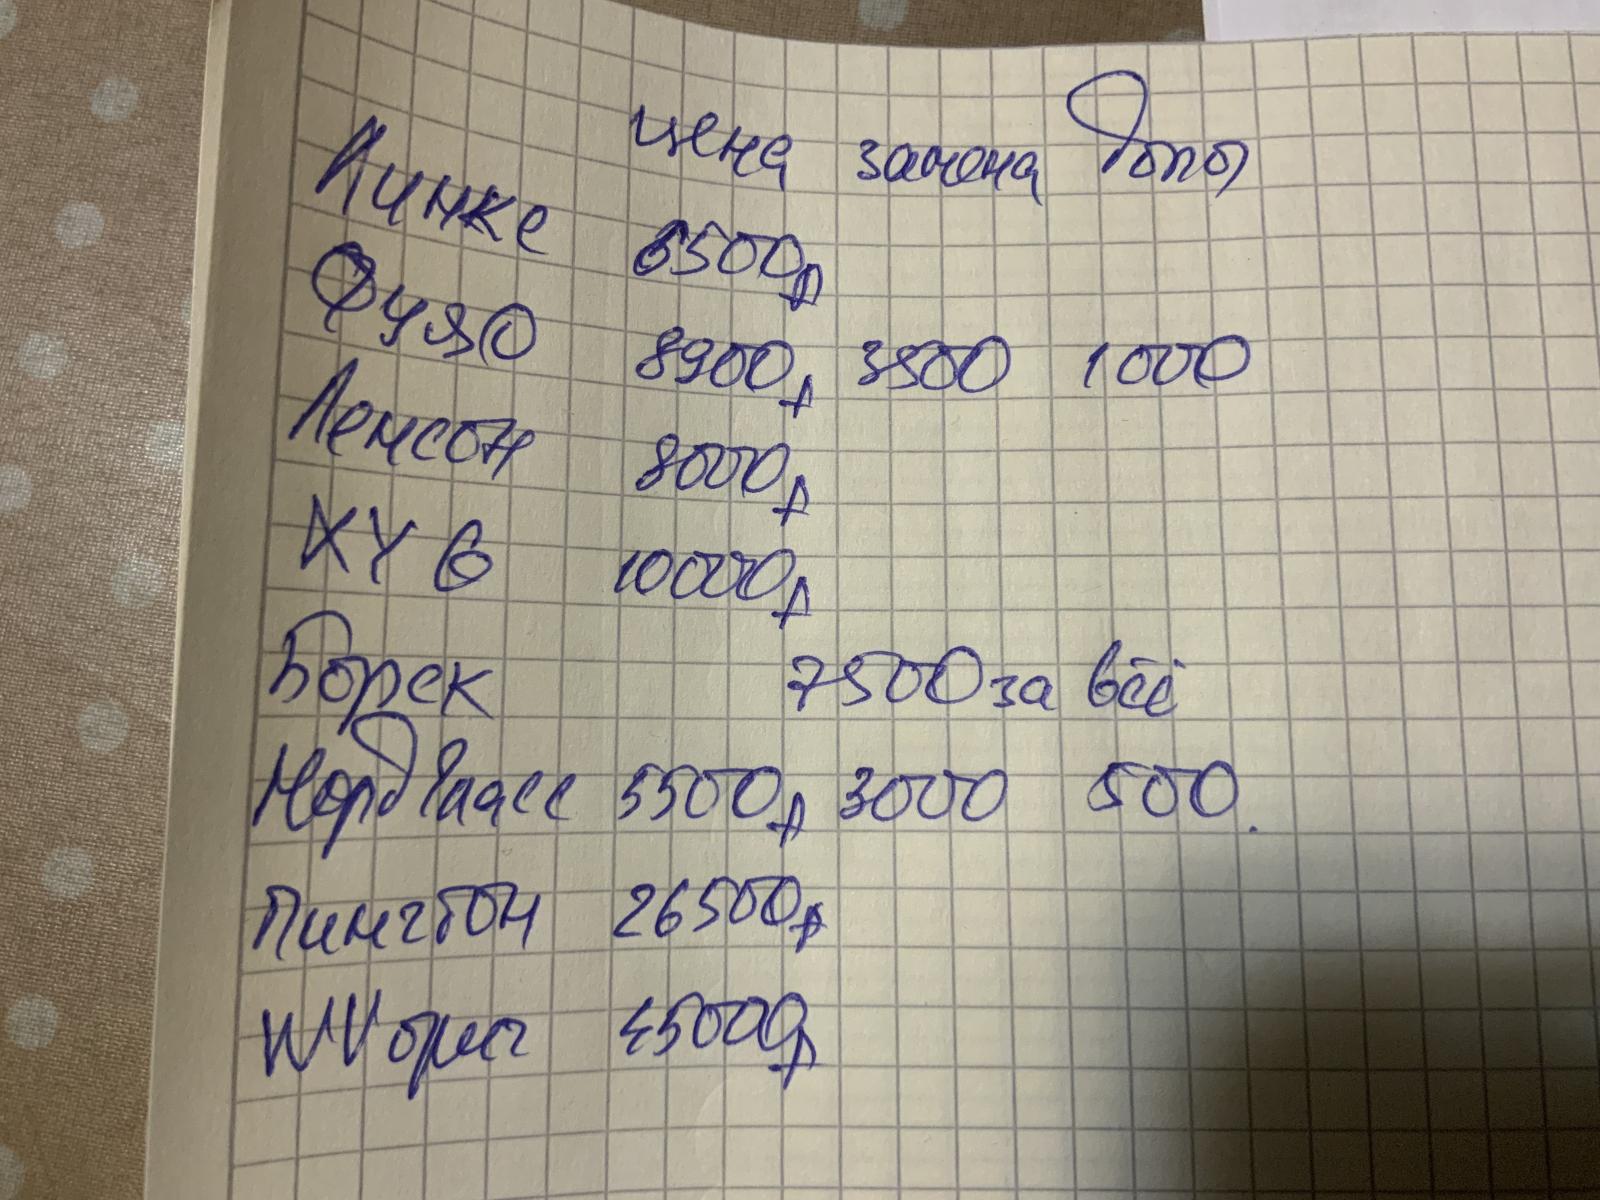 цена замена допы
Линке 6500р
Фуяо 8900р 3500 1000
Ленсон 8000р
XYG 10000р
Борск 7500 за всё
Норд Гласс 5500р 3000 500.
Пингтон 26500р
WV ориг 45000р